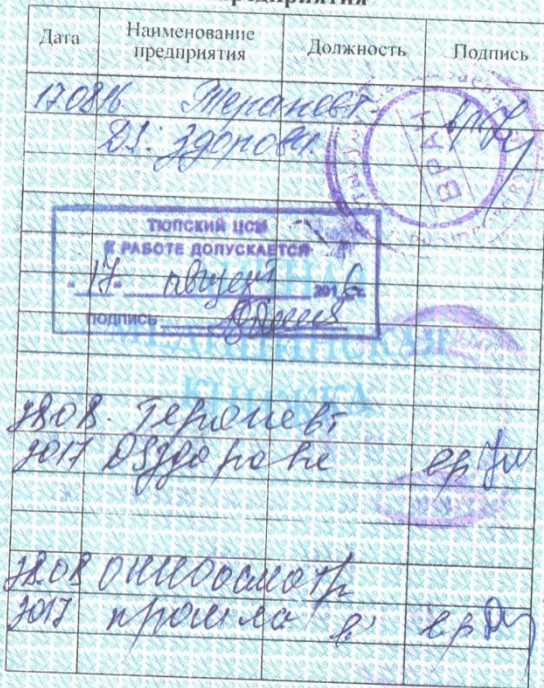 предприятия
Дата Наименование предприятия Должность Подпись
170816 Терапевт вр
DS: здорова
ВРАЧ
ТЮПСКИЙ ЦСМ
К РАБОТЕ ДОПУСКАЕТСЯ
"17" август 2016 г.
подпись
МЕДИЦИНСКАЯ
КНИЖКА
28.08. Терапевт
2017 DS здорова вр
28.08
2017 прошла вр